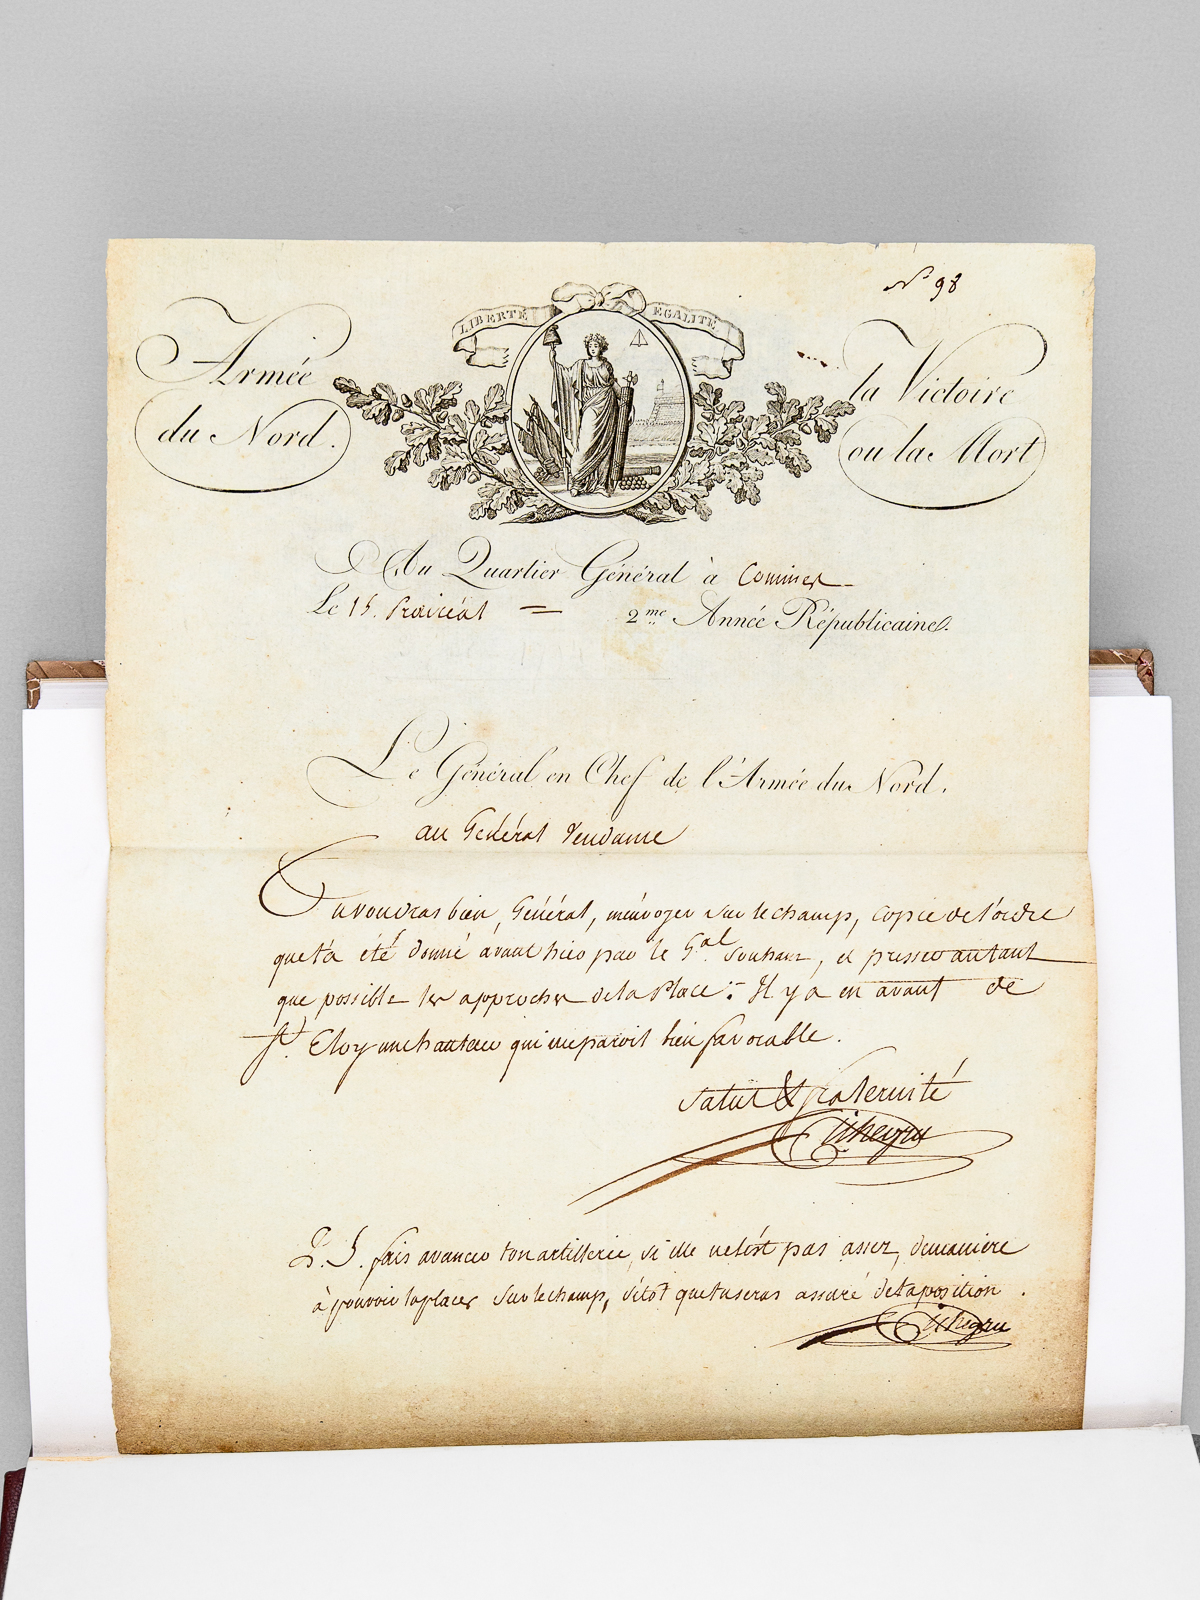 N° 98
LIBERTÉ ÉGALITÉ
Armée du Nord.
la Victoire ou la Mort
Au Quartier Général à Commines
Le 15. Prairéal = 2.me Année Républicaine.
Le Général en Chef de l'Armée du Nord.
au Général Vendame
Tu voudras bien, Général, m'envoyer sur le champ, copie de l'ordre
que t'a été donné avant hier par le G.al Souham, et presser autant
que possible les approches de la Place. Il y a en avant de
St. Eloy une hauteur qui me paroit bien favorable.
Salut & fraternité
Pichegru
P. S. fais avancer ton artillerie, si elle ne l'est pas assez, de maniere
à pouvoir la placer sur le champ, sitôt que tu seras assuré de ta position.
Pichegru